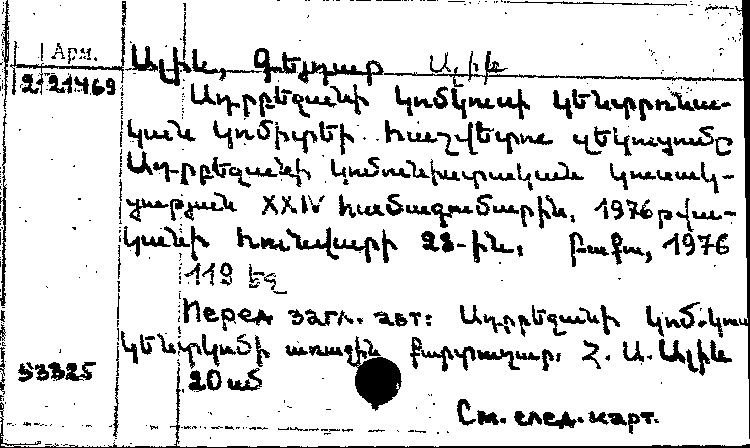 Арм.
Ալիև, Գեյդար Ալիև
2121469
Ադրբեջանի կոմկուսի կենտրոնա-
կան կոմիտեի հաշվետու զեկուցումը
Ադրբեջանի կոմունիստական կուսակ-
ցության XXIV համագումարին, 1976 թվա-
կանի հունվարի 28-ին: Բաքու, 1976
119 էջ
Перед загл. авт: Ադրբեջանի կոմ.կուս
կենտկոմի առաջին քարտուղար. Հ. Ա. Ալիև
53325
20 սմ
См. след. карт.